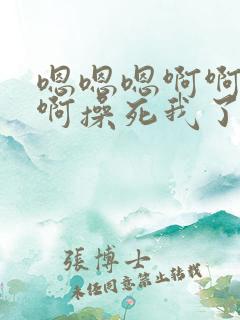 嗯嗯嗯啊啊
啊操死我了
張博士
未经同意禁止转载